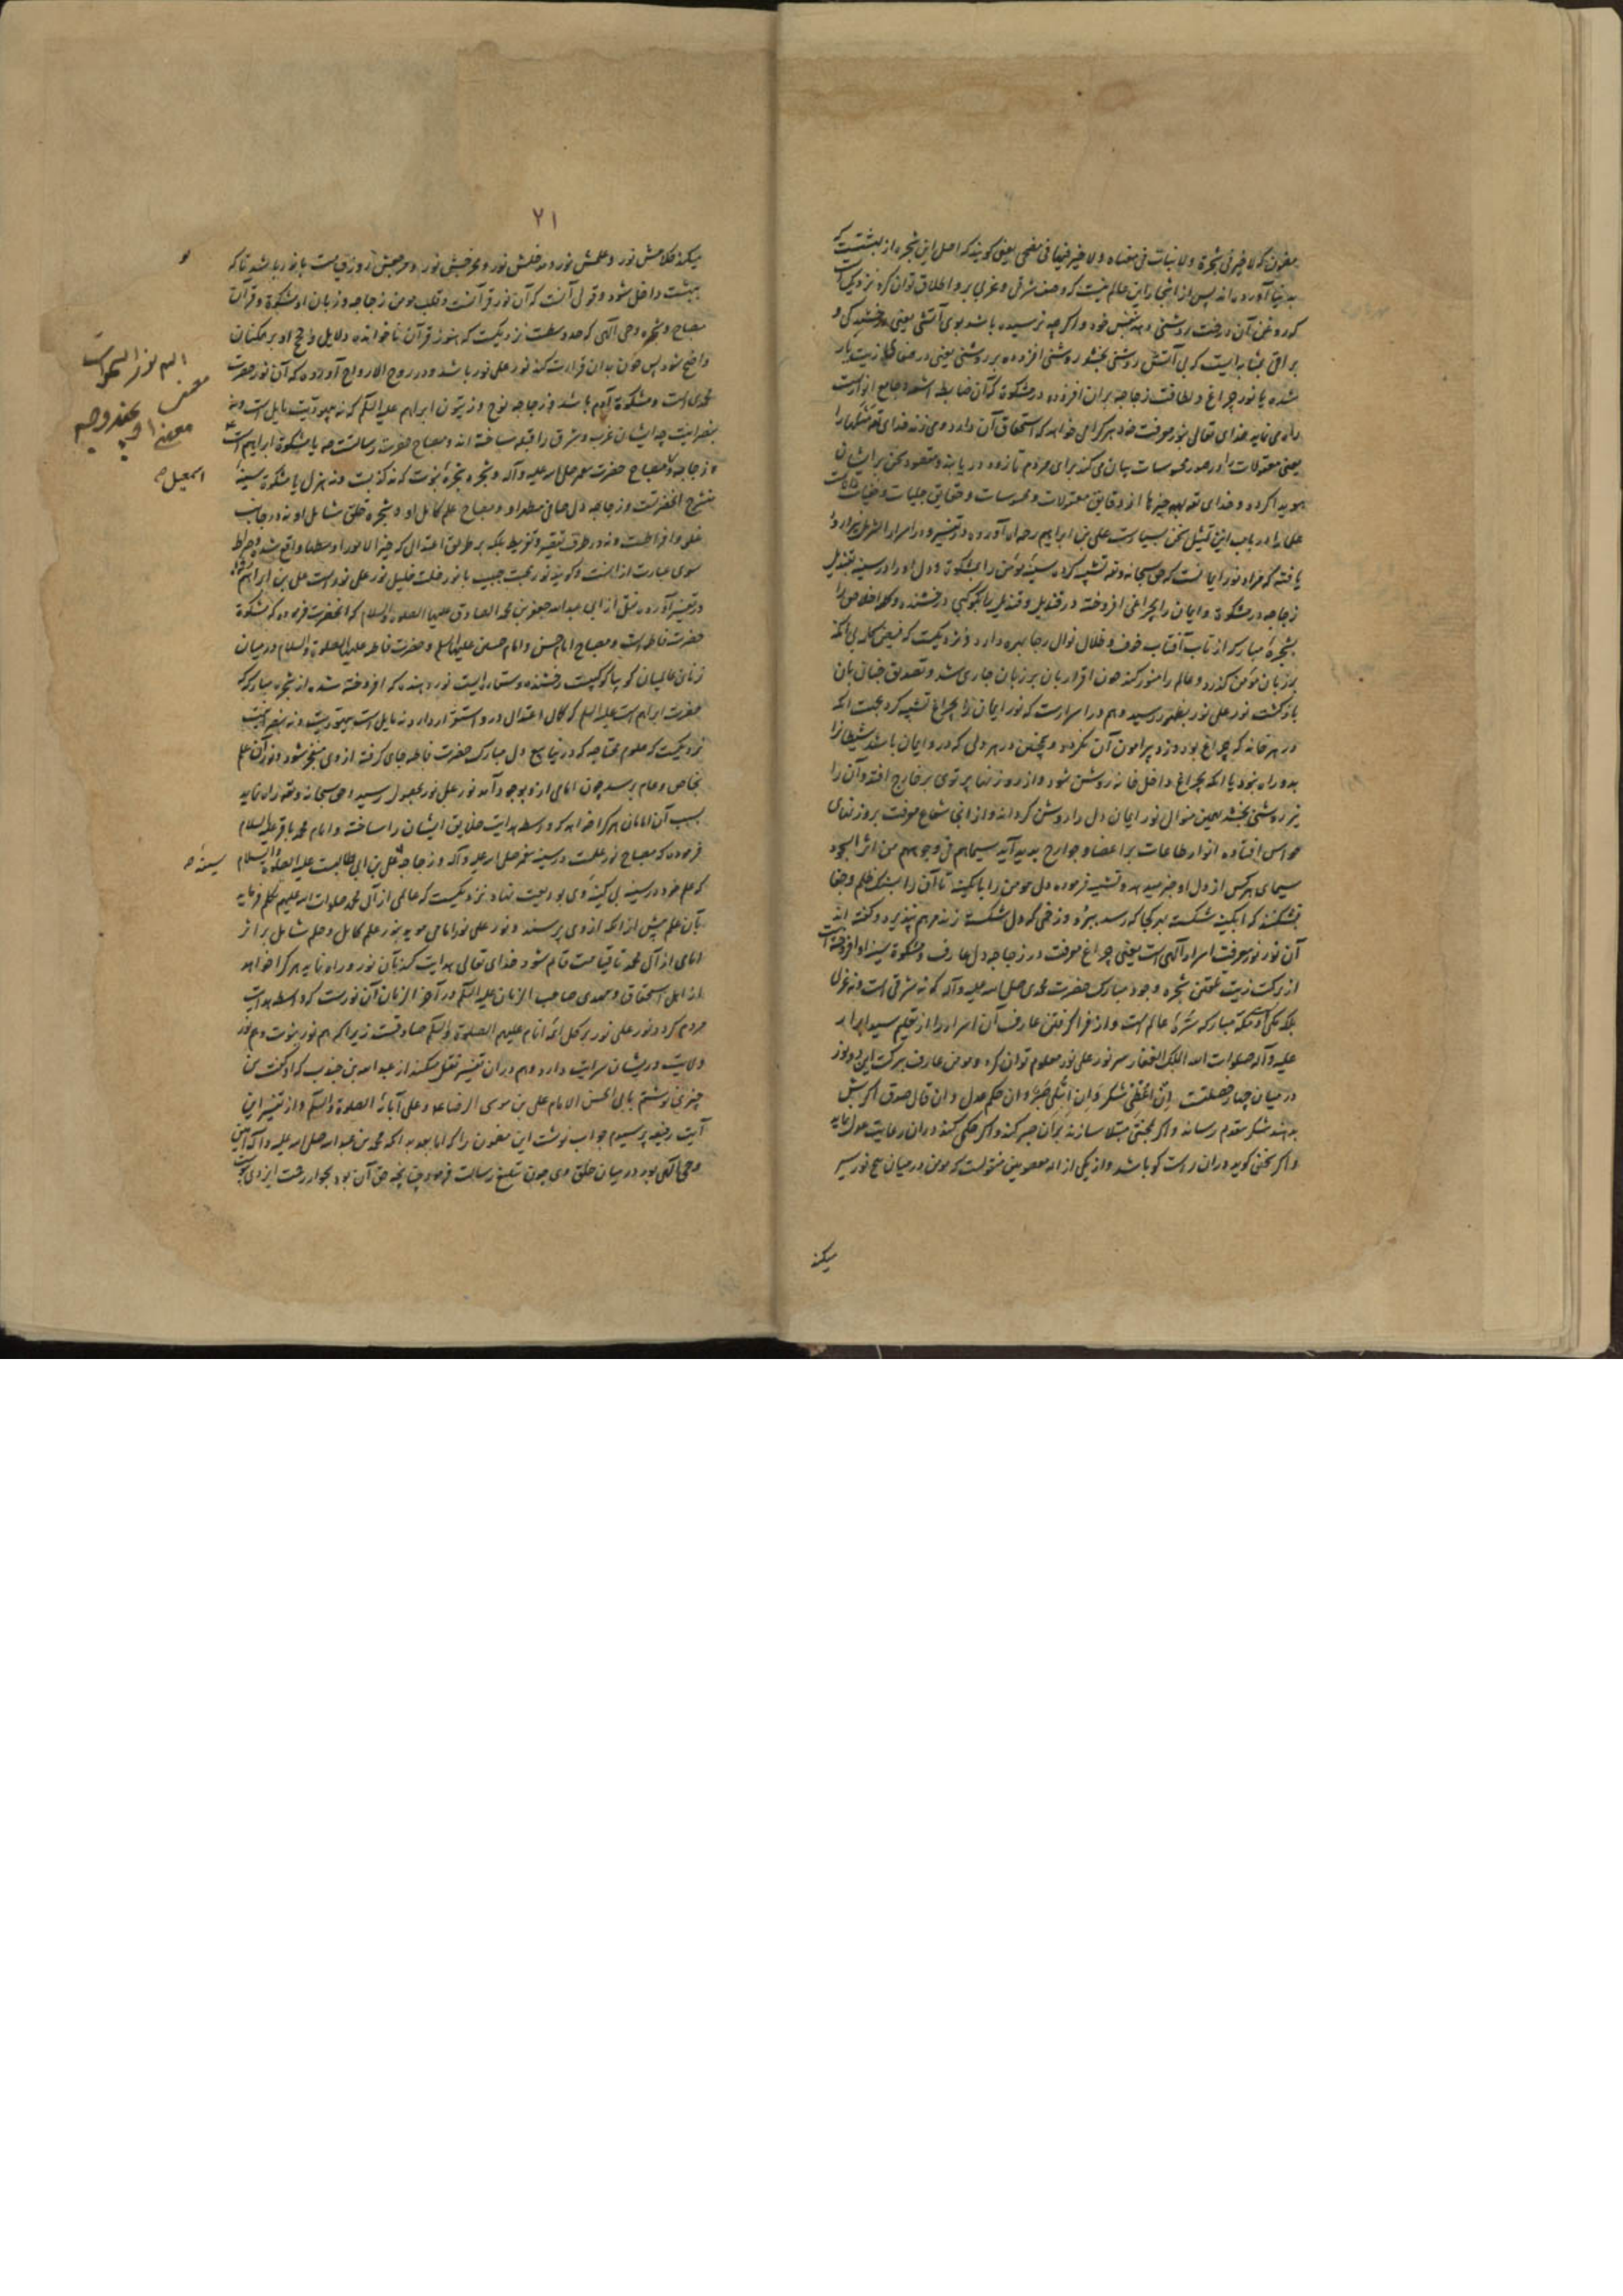 بمضمون که لا خیر فی شجرة ولا نبات فی مفناه ولا خیر فیها فی مضحی یعنی کویند که اصل این شجره از بهشت
بدنیا آورده‌اند پس از اشجار این عالم نیست که وصف شرقی و غربی برو اطلاق توان کرد نزدیک است
که روغن آن درخت روشنی دهد بنفس خود و اکرچه نرسیده باشد بوی آتشی یعنی درخشندکی و
براقی بمثابه ایست که بی آتش روشنی بخشد روشنی افزوده بر روشنی یعنی در صفا زیت یار
شده با نور چراغ و لطافت زجاجه بران افزوده در مشکوة که آن ضابطه اشعه و جامع انوارست
راه می نماید خدای تعالی بنور معرفت خود هرکرا می خواهد که استحقاق آن دارد و می زند خدای تع مثلها را
یعنی معقولات را در صور محسوسات بیان می کند برای مردم تا زود دریابند و مقصود سخن بر ایشان
هویدا کردد و خدای تع بهمه چیزها از دقایق معقولات و محسوسات و حقایق جلیات و خفیات دانا است
علما را در باب این تمثیل سخن بسیارست علی بن ابراهیم رحمه الله آورده در تفسیر و در اسرار
یافته که مراد نور ایمانست که حق سبحانه وتع تشبیه کرد سینه مؤمن را بمشکوة و دل او را در سینه بقندیل
زجاجه در مشکوة و ایمان را بچراغی افروخته در قندیل و قندیل را بکوکبی درخشنده و کلمه اخلاص را
بشجره مبارکه از تاب آفتاب خوف و ظلال نوال رجا بهره دارد و نزدیکست که فیض کلمه بی آنکه
بر زبان مؤمن کذرد و عالم را منور کند چون اقرار بان بر زبان جاری شد و تصدیق جنان بان
یار کشت نور علی نور بظهور رسید و هم در اسرارست که نور ایمان را بچراغ تشبیه کرد بجهت انکه
در هر خانه که چراغ بود دزد پیرامون آن نکردد و همچنین در هر دلی که درو ایمان باشد شیطانرا
بدو راه نبود یا انکه بچراغ داخل خانه روشن شود و از روزنها پرتوی بر خارج افتد و آن را
نیز روشنی بخشد بهمین منوال نور ایمان دل را روشن کرداند و از انجا شعاع معرفت بروزنهای
حواس افتاده انوار طاعات بر اعضا و جوارح پدید آید سیماهم فی وجوههم من اثر السجود
سیمای هرکس از دل او خبر میدهد و تشبیه فرموده دل مومن را بابکینه تا آن را بسنک ظلم و جفا
نشکنند که ابکینه شکسته بهرجا که رسد ببرد و زخمی که دل شکسته زند مرهم نپذیرد و کفته اند
آن نور نور معرفت اسرار آلهی است یعنی چراغ معرفت در زجاجه دل عارف و مشکوة سینه او افروخته است
از برکت زیت تلقین شجره وجود مبارک حضرت محمدی صلی الله علیه وآله که نه شرقی است و نه غربی
بلکه مکی است و مکه مبارکه سره عالم است و از فرا کرفتن عارف آن اسرار را از تعلیم سید ابرار
علیه وآله صلوات الله الملک الغفار سر نور علی نور معلوم توان کرد و مومن عارف ببرکت این دو نور
در میان چهار خصلت ان اعطی شکر وان ابتلی صبر وان حکم عدل وان قال صدق اکر
شکر مقدم رساند واکر بمحنتی مبتلا سازند بران صبر کند واکر حکمی کند دران رعایت عدل نماید
واکر سخنی کوید دران راست کو باشد واز یکی از ائمه معصومین منقولست که مومن در میان پنج نور سیر
میکند
۲۱
میکند کلامش نور و علمش نور و مدخلش نور و مخرجش نور و مرجعش روز قیامت با نور باشد تا که
ببهشت داخل شود و قول آنست که آن نور قرآنست و قلب مومن زجاجه و زبان او مشکوة و قرآن
مصباح و شجره وحی الهی که نزدیکست که هنوز قرآن ناخوانده دلایل و حجج او بر مکنان
واضح شود پس چون بدان قرارت کند نور علی نور باشد و در روح الارواح آورده که آن نور حضرت
محمدی است و مشکوة آدم باشد و زجاجه نوح و زیتون ابراهیم علیه السلم که نه بیهودیت مایل است و نه
بنصرانیت چه ایشان غرب و شرق را قبله ساخته اند و مصباح حضرت رسالت صه یا مشکوة ابراهیم است
و زجاجه و مصباح حضرت پیغمبر صلی الله علیه وآله و شجره شجره نبوت که نه کذبت و نه هزل یا مشکوة سینه
منشرح انحضرتست و زجاجه دل صافی مطهر او و مصباح علم کامل او و شجره خلق شامل او نه در جانب
غلو و افراطست و نه در طرف تقصیر و تفریط بلکه بر طریق اعتدال که خیر الامور اوسطها واقع شده و صراط
سوی عبارت از انست و کویند نور محبت حبیب با نور خلت خلیل نور علی نورست علی بن ابراهیم
در تفسیر آورده نقل از ابی عبدالله جعفر بن محمد الصادق علیهما الصلوة والسلام که انحضرت فرموده که مشکوة
حضرت فاطمه است و مصباح امام حسن و امام حسین علیهما السلم و حضرت فاطمه علیها الصلوة والسلام در میان
زنان عالمیان کویا کوکبیست رخشنده و ستاره ایست نور دهنده که افروخته شده از شجره مبارکه که
حضرت ابراهیم است علیه السلم که کمال اعتدال درو استقرار دارد نه مایل است بیهودیت و نه بنصرانیت
نزدیکست که علوم محتاجه که در ینابیع دل مبارک حضرت فاطمه جای کرفته از وی منفجر شود و نور آن علم
بخاص و عام برسد چون امامی ازو بوجود آمد نور علی نور بحصول رسید و حق سبحانه وتع راه نماید
بسبب آن امامان هرکرا خواهد که واسطه هدایت خلایق ایشان را ساخته و امام محمد باقر علیه السلام
فرموده که مصباح نور علمست در سینه پیغمبر صلی الله علیه وآله و زجاجه علی بن ابی طالبست علیه الصلوة والسلام
که علم خود در سینه بی کینه وی بودیعت نهاد نزدیکست که عالمی از آل محمد صلوات الله علیهم تکلم فرماید
بان علم پیش از انکه از وی پرسند و نور علی نور امامی موید بنور علم کامل و حلم شامل بر اثر
امامی از آل محمد تا قیامت قایم شود خدای تعالی هدایت کند بآن نور و راه نماید هرکرا خواهد
از اهل استحقاق و مهدی صاحب الزمان علیه السلم در آخر الزمان آن نورست که واسطه هدایت
مردم کردد و نور علی نور بر کل ائمه انام علیهم الصلوة والسلم صادقست زیرا که هم نور نبوت و هم نور
ولایت در یشان سرایت دارد و هم دران تفسیر نقل میکند از عبد الله بن جندب که او کفت من
چیزی نوشتم بابی الحسن الامام علی بن موسی الرضا علیه وعلی آبائه الصلوة والسلم و از تفسیر این
آیت رفیعه پرسیدم جواب نوشت این مضمون را که اما بعد بدانکه محمد بن عبد الله صلی الله علیه وآله امین
وحی الهی بود در میان خلق وی چون تبلیغ رسالت فرمود چنانچه حق آن بود بجوار رحمت ایزدی پیوست
الله نور السموات
بچند وجه
اسمعیل
سینه صه